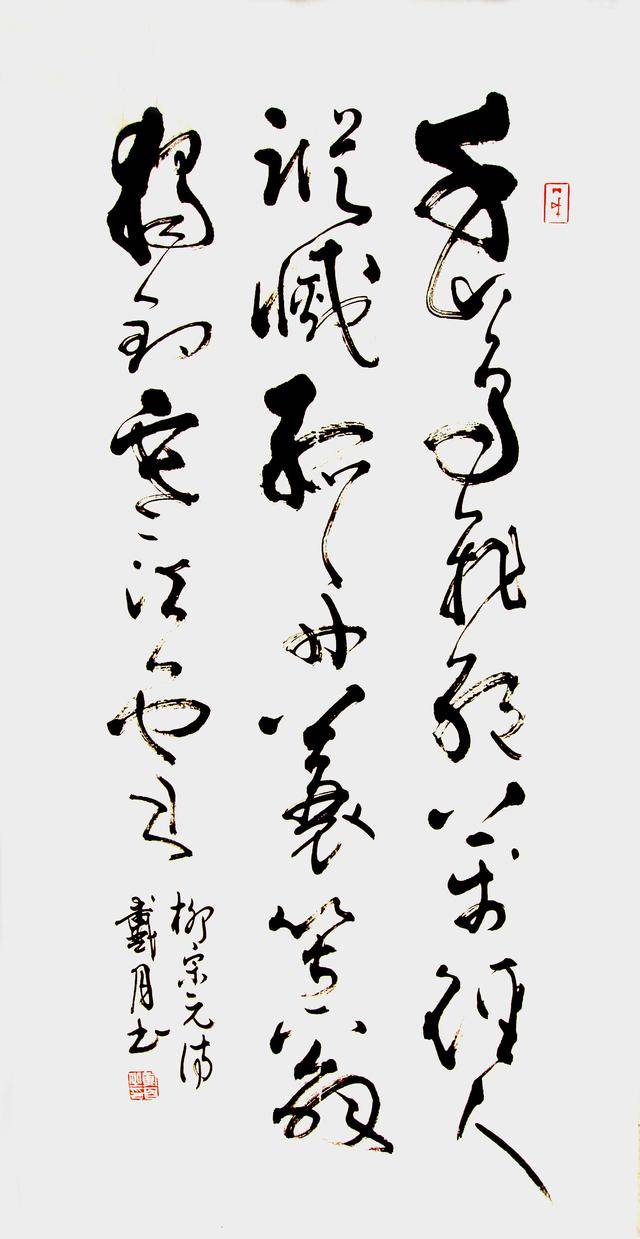 千山鳥飛絕萬徑人
蹤滅孤舟蓑笠翁
獨釣寒江雪
柳宗元詩
戴月书